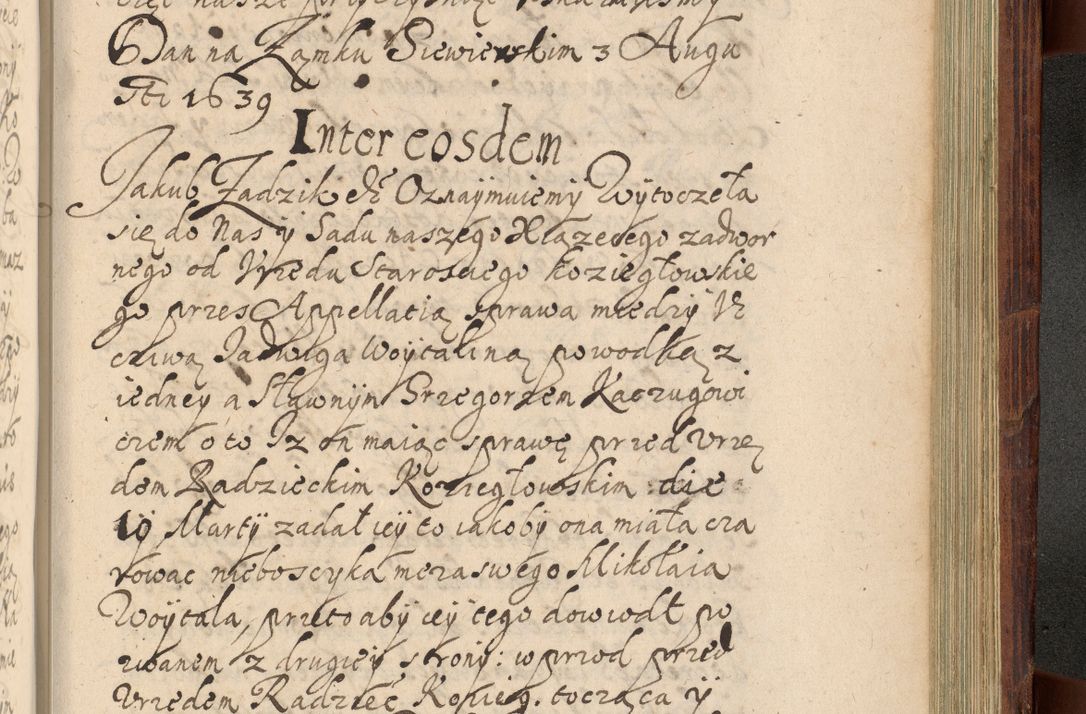 Dan na Zamku Siewierskim 3 Augu
sti 1639
Inter eosdem
Jakub Zadzik etc Oznaÿmuiemÿ Wÿtoczeła
się do Nas ÿ Sadu naszego Xiazecego zadwor
nego od Vrzedu Staroscięgo Kozieglowskie
go przes Appellatią sprawa miedzÿ Vc
zciwą Jadwiga Woÿtaliną powodką z
iedneÿ a Sławnÿm Grzegorzem Kaczugowi
czem o to Jz on maiąc sprawę przed Vrzę
dem Radzieckim Kozieglowskim die
19 Martÿ zadał ieÿ to iakobÿ ona miała cza
rowac nieboscyka meza swego Mikołaia
Woÿtala, przeto abÿ ieÿ tego dowiodł po
zwanem z drugieÿ stronÿ: w przod przed
Vrzedem Radziec Kozieg. tocząca ÿ